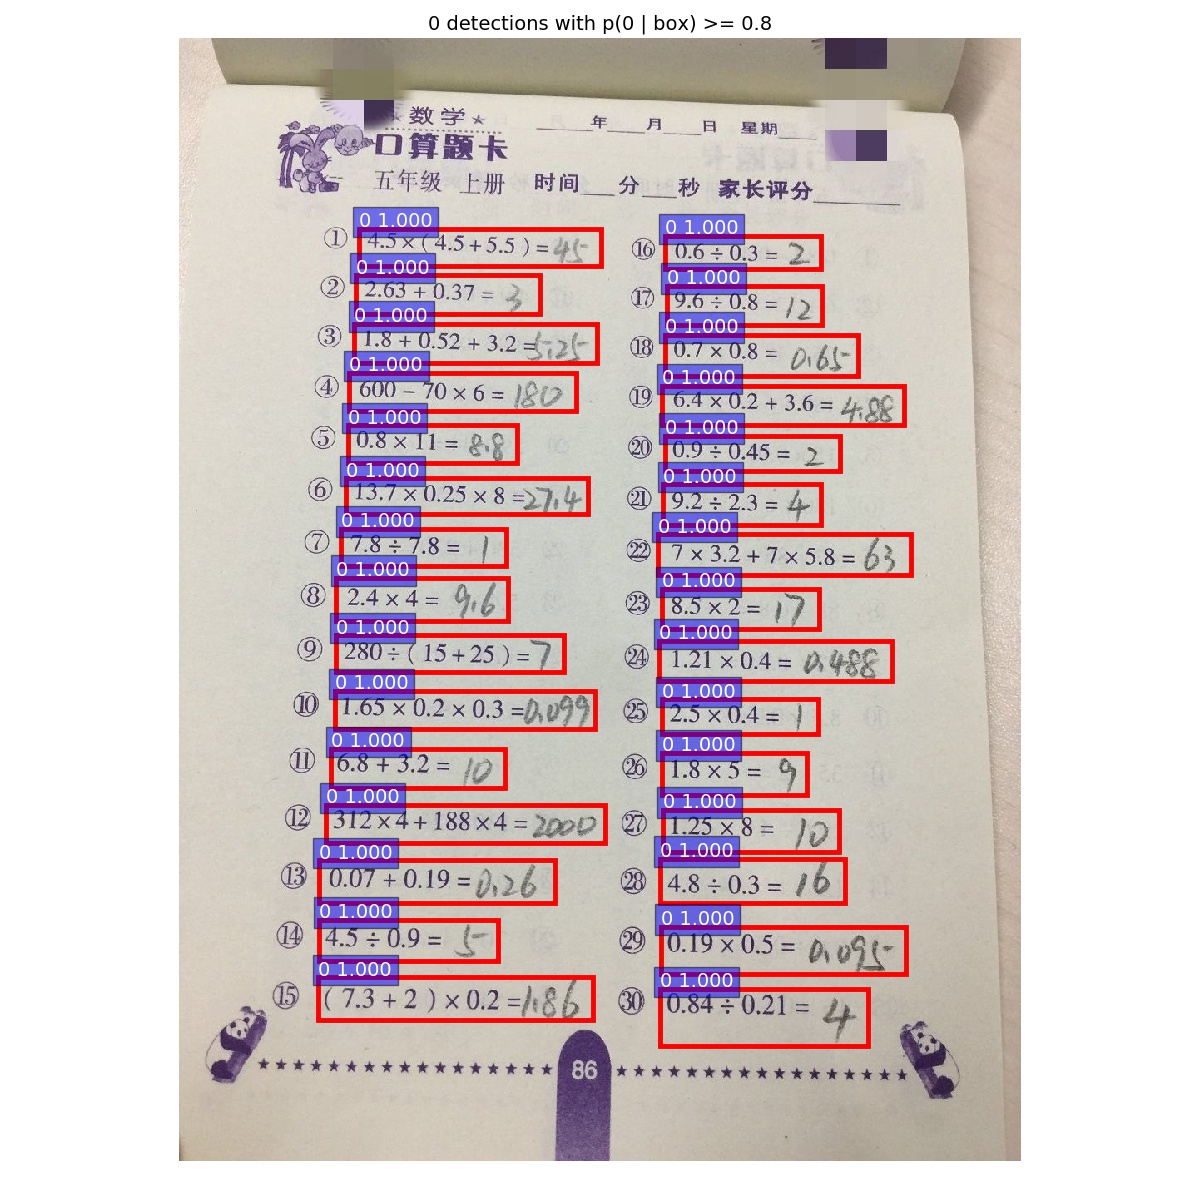 0 detections with p(0 | box) >= 0.8
数学
口算题卡
____年____月____日 星期
五年级 上册 时间___分___秒 家长评分________
0 1.000
① 4.5×(4.5+5.5)=45
0 1.000
② 2.63+0.37=3
0 1.000
③ 1.8+0.52+3.2=5.25
0 1.000
④ 600-70×6=180
0 1.000
⑤ 0.8×11=8.8
0 1.000
⑥ 13.7×0.25×8=27.4
0 1.000
⑦ 7.8÷7.8=1
0 1.000
⑧ 2.4×4=9.6
0 1.000
⑨ 280÷(15+25)=7
0 1.000
⑩ 1.65×0.2×0.3=0.099
0 1.000
⑪ 6.8+3.2=10
0 1.000
⑫ 312×4+188×4=2000
0 1.000
⑬ 0.07+0.19=0.26
0 1.000
⑭ 4.5÷0.9=5
0 1.000
⑮ (7.3+2)×0.2=1.86
0 1.000
⑯ 0.6÷0.3=2
0 1.000
⑰ 9.6÷0.8=12
0 1.000
⑱ 0.7×0.8=0.65
0 1.000
⑲ 6.4×0.2+3.6=4.88
0 1.000
⑳ 0.9÷0.45=2
0 1.000
㉑ 9.2÷2.3=4
0 1.000
㉒ 7×3.2+7×5.8=63
0 1.000
㉓ 8.5×2=17
0 1.000
㉔ 1.21×0.4=0.488
0 1.000
㉕ 2.5×0.4=1
0 1.000
㉖ 1.8×5=9
0 1.000
㉗ 1.25×8=10
0 1.000
㉘ 4.8÷0.3=16
0 1.000
㉙ 0.19×0.5=0.095
0 1.000
㉚ 0.84÷0.21=4
86